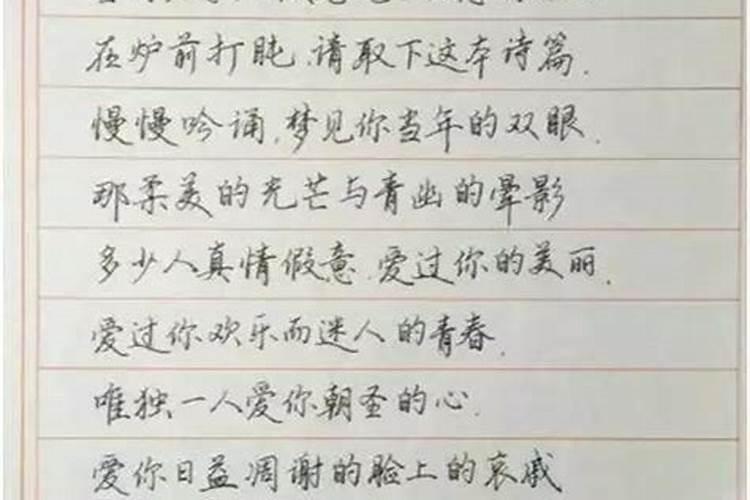 在炉前打盹,请取下这本诗篇.
慢慢吟诵,梦见你当年的双眼.
那柔美的光芒与青幽的晕影
多少人真情假意,爱过你的美丽.
爱过你欢乐而迷人的青春.
唯独一人爱你朝圣的心.
爱你日益凋谢的脸上的哀戚